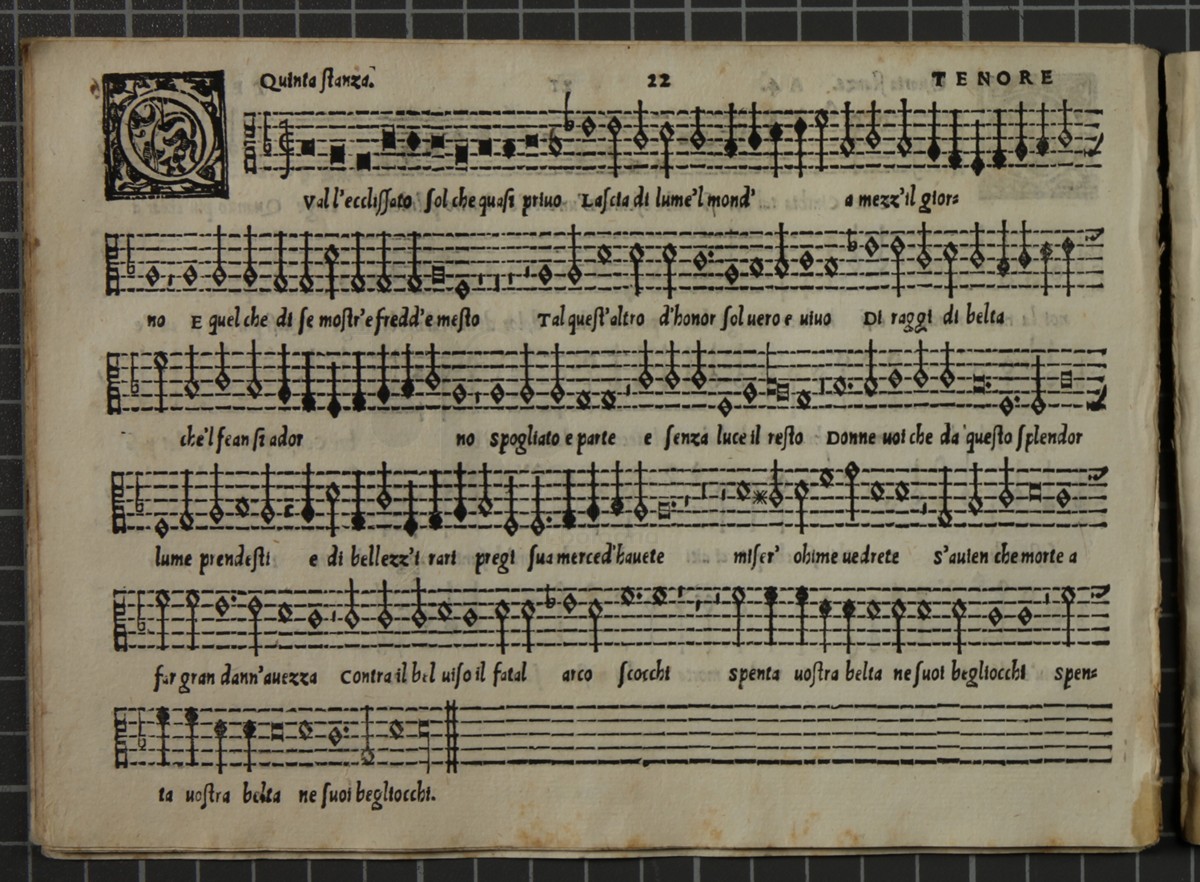 Quinta ſtanza. 22 TENORE
Q
Val l'eccliſſato ſol che quaſi priuo Laſcia di lume'l mond' a mezz'il gior=
no E quel che di ſe moſtr'e fredd'e meſto Tal queſt'altro d'honor ſol uero e uiuo Di raggi di belta
che'l fean ſi ador no Spogliato e parte e ſenza luce il reſto Donne uoi che da queſto ſplendor
lume prendeſti e di bellezz'i rari pregi ſua merced'hauete miſer' ohime uedrete S'auien che morte a
far gran dann'auezza Contra il bel uiſo il fatal arco ſcocchi ſpenta uoſtra belta ne ſuoi begliocchi ſpen=
ta uoſtra belta ne ſuoi begliocchi.